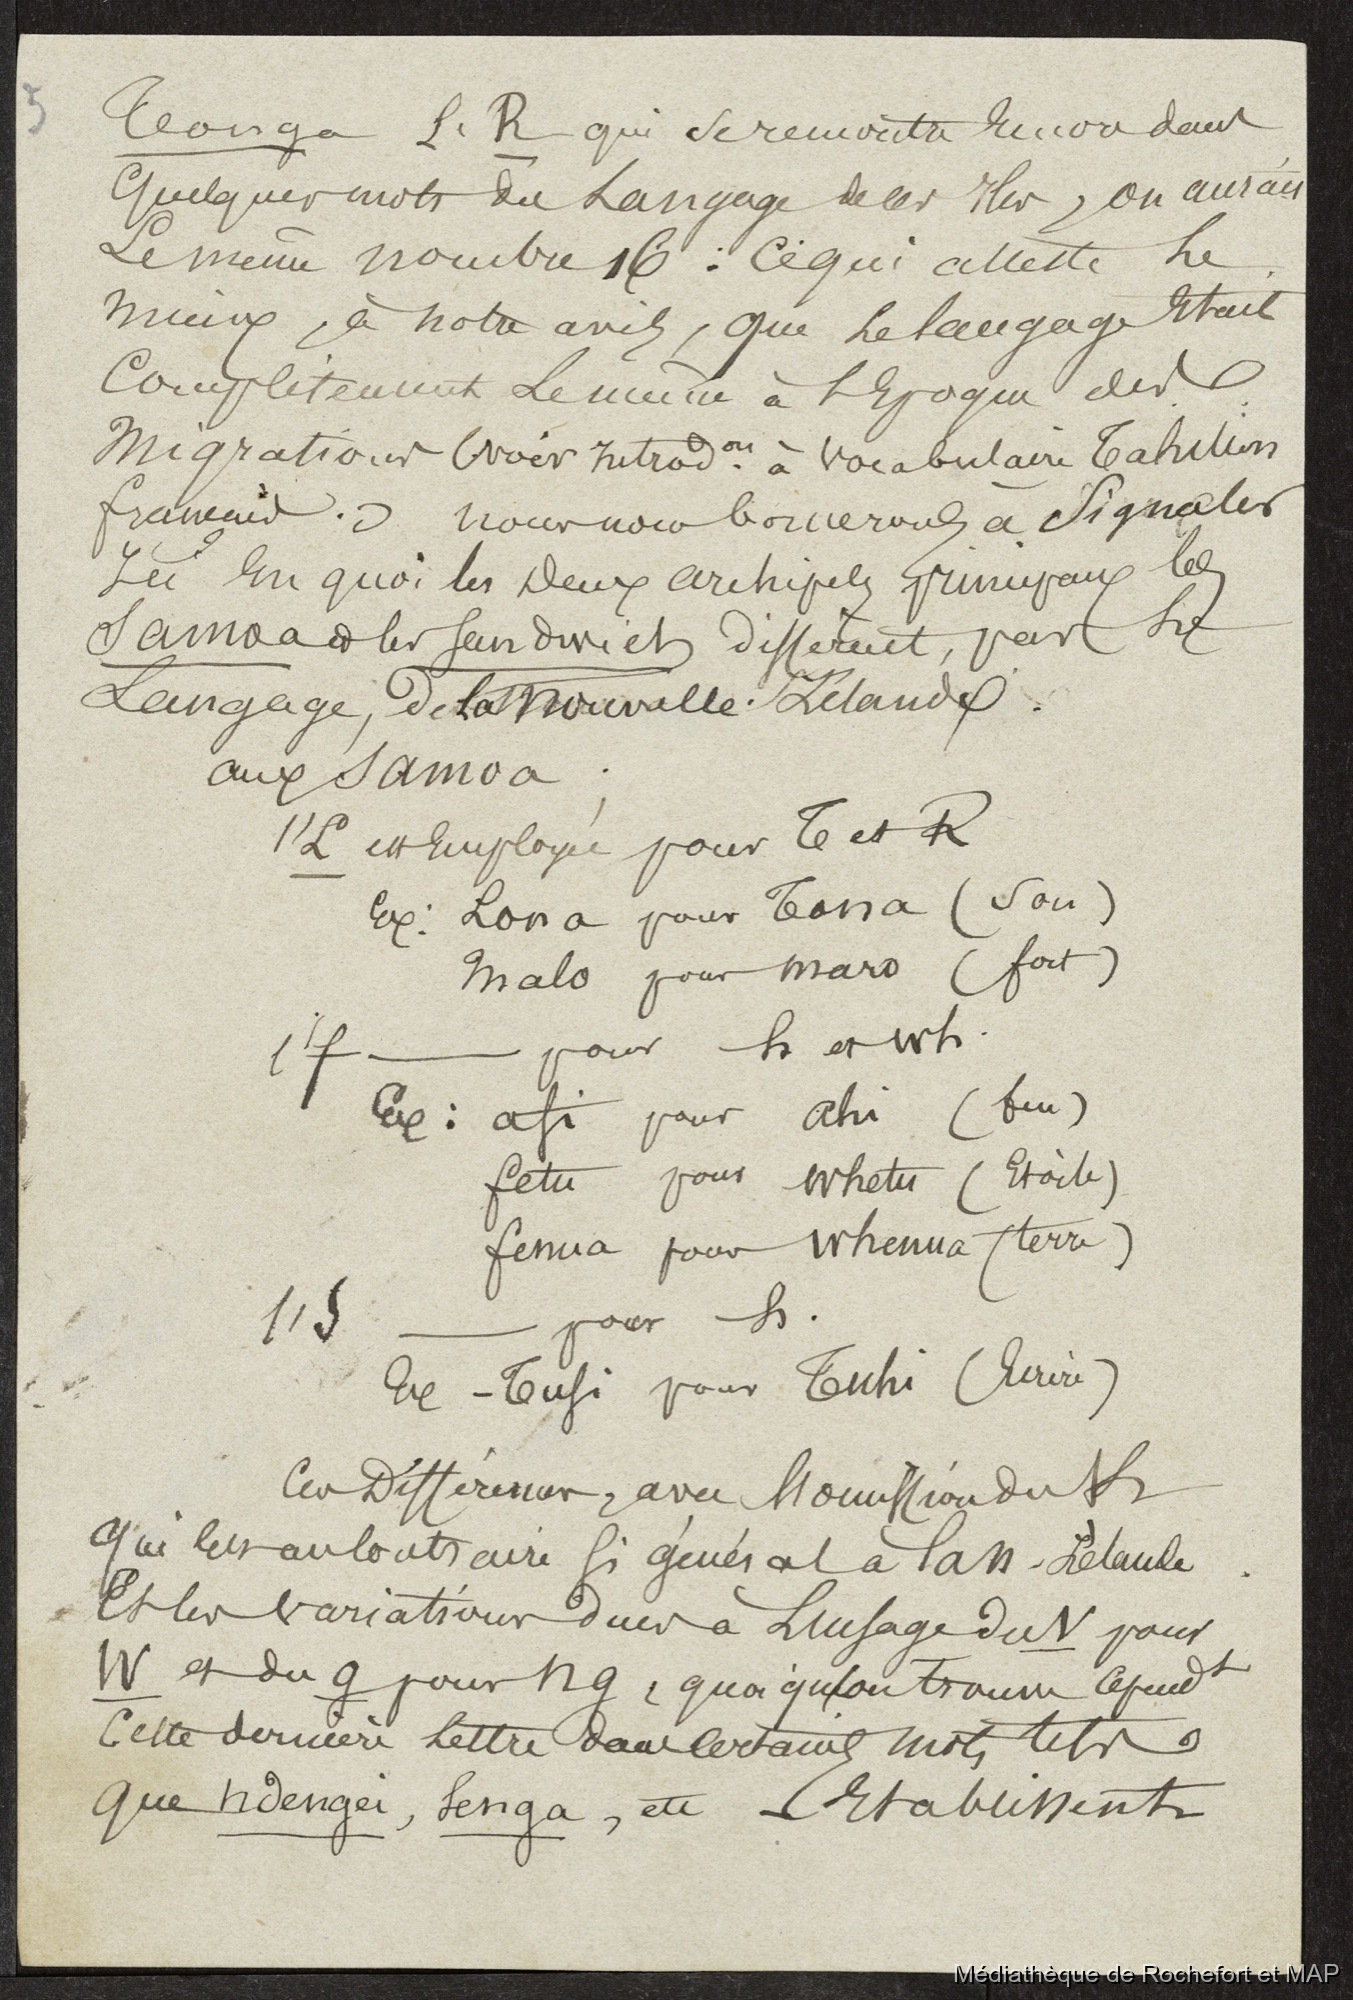 5
Tonga le R qui se rencontre Encore dans
Quelques mots du Langage de ces Iles, on aurait
Le même nombre 16 : Ce qui atteste Le
mieux, à notre avis, que Le langage Etait
Complètement Le même à L'Epoque des
Migrations (voir Introd.on à Vocabulaire Tahitien
français.) nous nous bornerons à Signaler
Ici En quoi les Deux archipels principaux les
Samoa et les Sandwich Différent, par Le
Langage, De la Nouvelle-Zélande.
aux Samoa ;
l'L est Employé pour T et R
Ex: Lona pour Tona (Son)
Malo pour maro (fort)
l'f ——— pour h et wh.
Ex: afi pour ahi (feu)
fetu pour whetu (Etoile)
fenua pour whenua (terre)
l'S ——— pour h.
Ex - Tusi pour Tuhi (Ecrire)
Ces Différences, avec L'omission du K
qui Est au Contraire si général à la N-Zélande
Et les variations dues à L'usage du V pour
W et du g pour ng, quoiqu'on trouve Cepend.t
Cette dernière Lettre dans Certains mots tels
que Ndengei, Senga, etc - Etablissent
Médiathèque de Rochefort et MAP